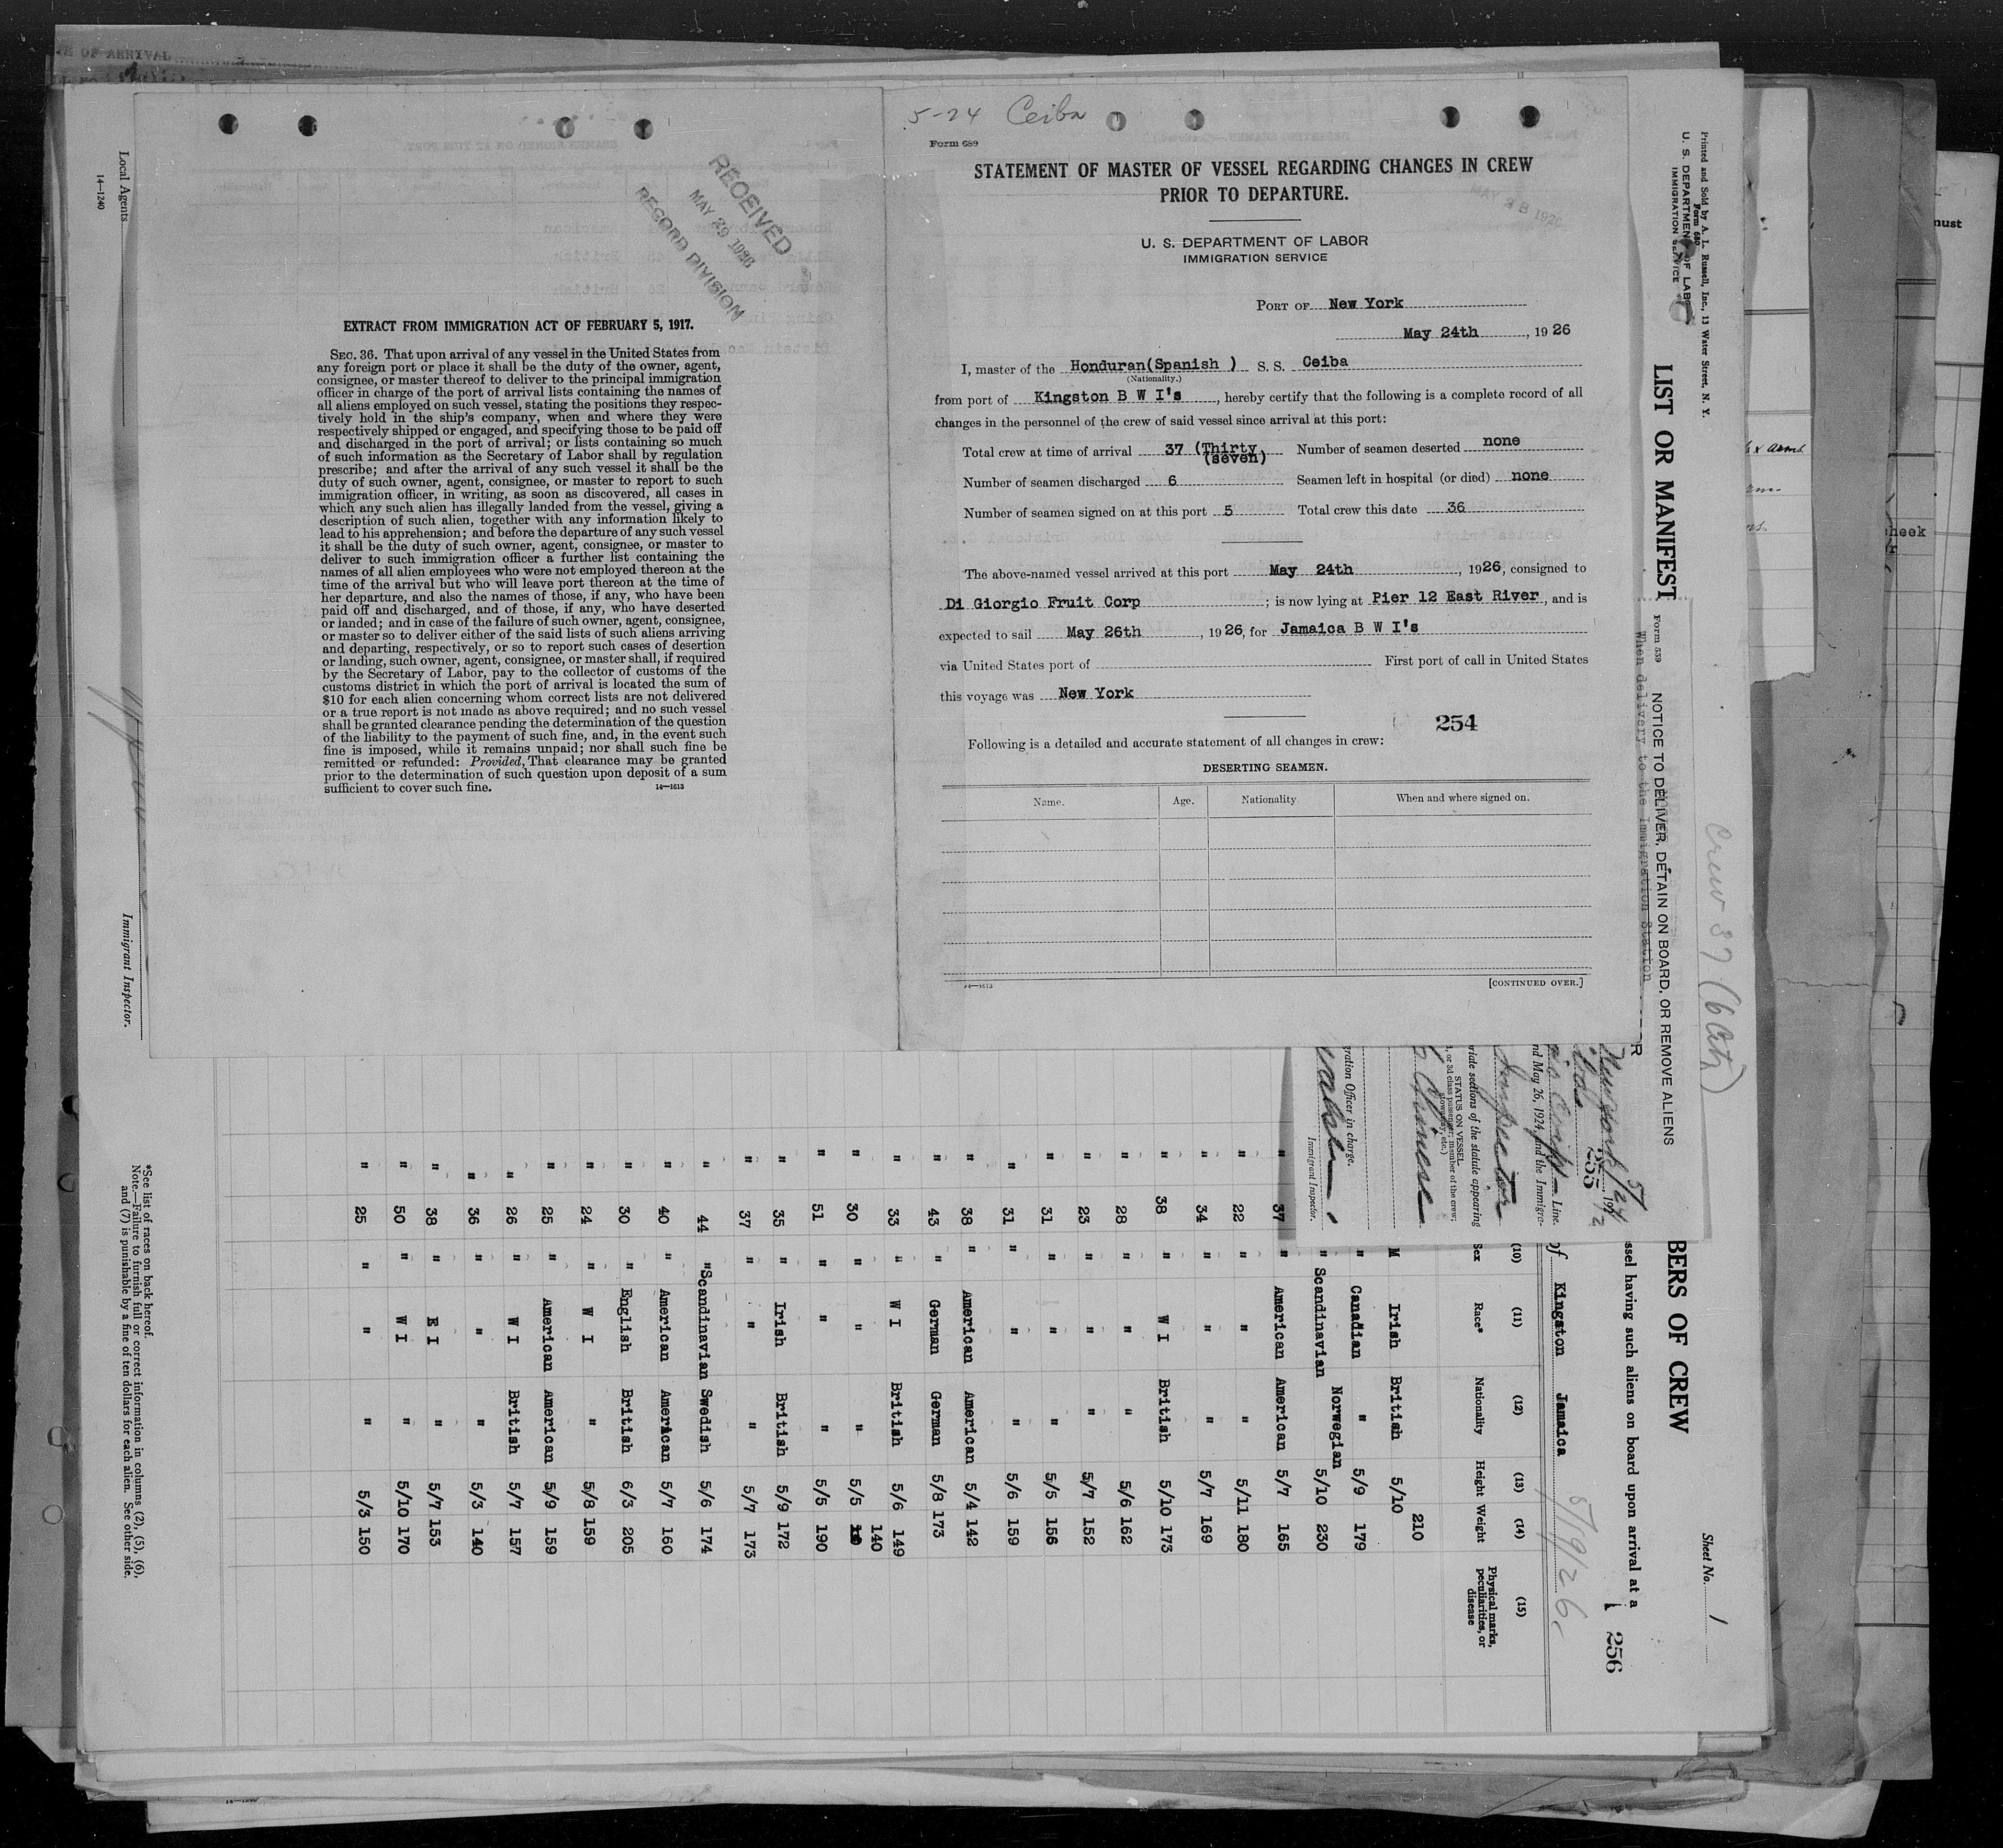 5-24 Ceiba
Form 689
STATEMENT OF MASTER OF VESSEL REGARDING CHANGES IN CREW
PRIOR TO DEPARTURE.
U. S. DEPARTMENT OF LABOR
IMMIGRATION SERVICE
PORT OF New York
May 24th, 1926
I, master of the Honduran(Spanish ) S. S. Ceiba
(Nationality.)
from port of Kingston B W I's, hereby certify that the following is a complete record of all
changes in the personnel of the crew of said vessel since arrival at this port:
Total crew at time of arrival 37 (Thirty Number of seamen deserted none
(seven)
Number of seamen discharged 6 Seamen left in hospital (or died) none
Number of seamen signed on at this port 5 Total crew this date 36
The above-named vessel arrived at this port May 24th, 1926, consigned to
Di Giorgio Fruit Corp; is now lying at Pier 12 East River, and is
expected to sail May 26th, 1926, for Jamaica B W I's
via United States port of First port of call in United States
this voyage was New York
254
Following is a detailed and accurate statement of all changes in crew:
DESERTING SEAMEN.
Name. Age. Nationality When and where signed on.
14—1613 [CONTINUED OVER.]
RECEIVED
MAY 29 1926
RECORD DIVISION
EXTRACT FROM IMMIGRATION ACT OF FEBRUARY 5, 1917.
SEC. 36. That upon arrival of any vessel in the United States from
any foreign port or place it shall be the duty of the owner, agent,
consignee, or master thereof to deliver to the principal immigration
officer in charge of the port of arrival lists containing the names of
all aliens employed on such vessel, stating the positions they respec-
tively hold in the ship's company, when and where they were
respectively shipped or engaged, and specifying those to be paid off
and discharged in the port of arrival; or lists containing so much
of such information as the Secretary of Labor shall by regulation
prescribe; and after the arrival of any such vessel it shall be the
duty of such owner, agent, consignee, or master to report to such
immigration officer, in writing, as soon as discovered, all cases in
which any such alien has illegally landed from the vessel, giving a
description of such alien, together with any information likely to
lead to his apprehension; and before the departure of any such vessel
it shall be the duty of such owner, agent, consignee, or master to
deliver to such immigration officer a further list containing the
names of all alien employees who were not employed thereon at the
time of the arrival but who will leave port thereon at the time of
her departure, and also the names of those, if any, who have been
paid off and discharged, and of those, if any, who have deserted
or landed; and in case of the failure of such owner, agent, consignee,
or master so to deliver either of the said lists of such aliens arriving
and departing, respectively, or so to report such cases of desertion
or landing, such owner, agent, consignee, or master shall, if required
by the Secretary of Labor, pay to the collector of customs of the
customs district in which the port of arrival is located the sum of
$10 for each alien concerning whom correct lists are not delivered
or a true report is not made as above required; and no such vessel
shall be granted clearance pending the determination of the question
of the liability to the payment of such fine, and, in the event such
fine is imposed, while it remains unpaid; nor shall such fine be
remitted or refunded: Provided, That clearance may be granted
prior to the determination of such question upon deposit of a sum
sufficient to cover such fine.
14—1613
Printed and Sold by A. L. Russell, Inc., 13 Water Street, N. Y.
Form 680
U. S. DEPARTMENT OF LABOR
IMMIGRATION SERVICE
LIST OR MANIFEST
BERS OF CREW
Form 559
NOTICE TO DELIVER, DETAIN ON BOARD, OR REMOVE ALIENS
When delivery to the Immigration Station
Crew 37 (6 Ctz)
Sheet No. 1
ssel having such aliens on board upon arrival at a
256
of Kingston Jamaica
5/19/26
255
Line.
nd May 26, 1924, and the Immigra-
Inspector
riate sections of the statute appearing
STATUS ON VESSEL
, or 3d class passenger; member of the crew;
stowaway, etc.)
Chinese
gration Officer in charge.
Immigrant Inspector.
(10) (11) (12) (13) (14) (15)
Sex Race* Nationality Height Weight Physical marks, peculiarities, or disease
M Irish British 5/10 210
" Canadian " 5/9 179
" Scandinavian Norwegian 5/10 230
" 37 " American American 5/7 165
" 22 " " " 5/11 180
" 34 " " " 5/7 169
" 38 " W I British 5/10 173
" 28 " " " 5/6 162
" 23 " " " 5/7 152
" 31 " " " 5/5 156
" 31 " " " 5/6 159
" 38 " American American 5/4 142
" 43 " German German 5/8 173
" 33 " W I British 5/6 149
" 30 " " " 5/5 140
" 51 " " " 5/5 190
" 35 " Irish British 5/9 172
" 37 " " " 5/7 173
" 44 " Scandinavian Swedish 5/6 174
" 40 " American American 5/7 160
" 30 " English British 6/3 205
" 24 " W I " 5/8 159
" 25 " American American 5/9 159
" 26 " W I British 5/7 157
" 36 " " " 5/3 140
" 38 " E I " 5/7 153
" 50 " W I " 5/10 170
" 25 " " " 5/3 150
*See list of races on back hereof.
Note.—Failure to furnish full or correct information in columns (2), (5), (6),
and (7) is punishable by a fine of ten dollars for each alien. See other side.
Local Agents
14—1240
Immigrant Inspector.
OF ARRIVAL
nust
heek